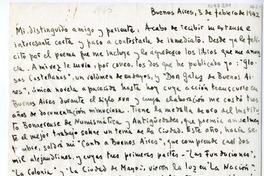 Buenos Aires, 3 de febrero de 1942
Mi distinguido amigo y pariente: Acabo de recibir su extensa e
interesante carta y paso a contestarla de inmediato. Desde ya le pido
perdón por el poema que me incluye y le agradezco los libros que me anuncia
cía. A mi vez le envío, por correo, los dos que he publicado yo: "Glosas
Castellanas", un volumen de ensayos, y "Don Galaz de Buenos Aires",
única novela a aparición hasta hoy, cuya acción transcurre en
Buenos Aires durante el siglo XVII y cuya elaboración me costó tres
años de documentación minuciosa. Tiene la medalla de oro del Instituto
Bonaerense de Numismática y Antigüedades, que premia anualmente
el mejor trabajo sobre un tema de la Ciudad. Este año, hacia
se bre, saldrá mi "Canto a Buenos Aires", que comprende casi dos
mil alejandrinos, y cuyas tres primeras partes - "La Fundación",
"La Colonia" y "La Ciudad de Mayo", vieron la luz en "La Nación"